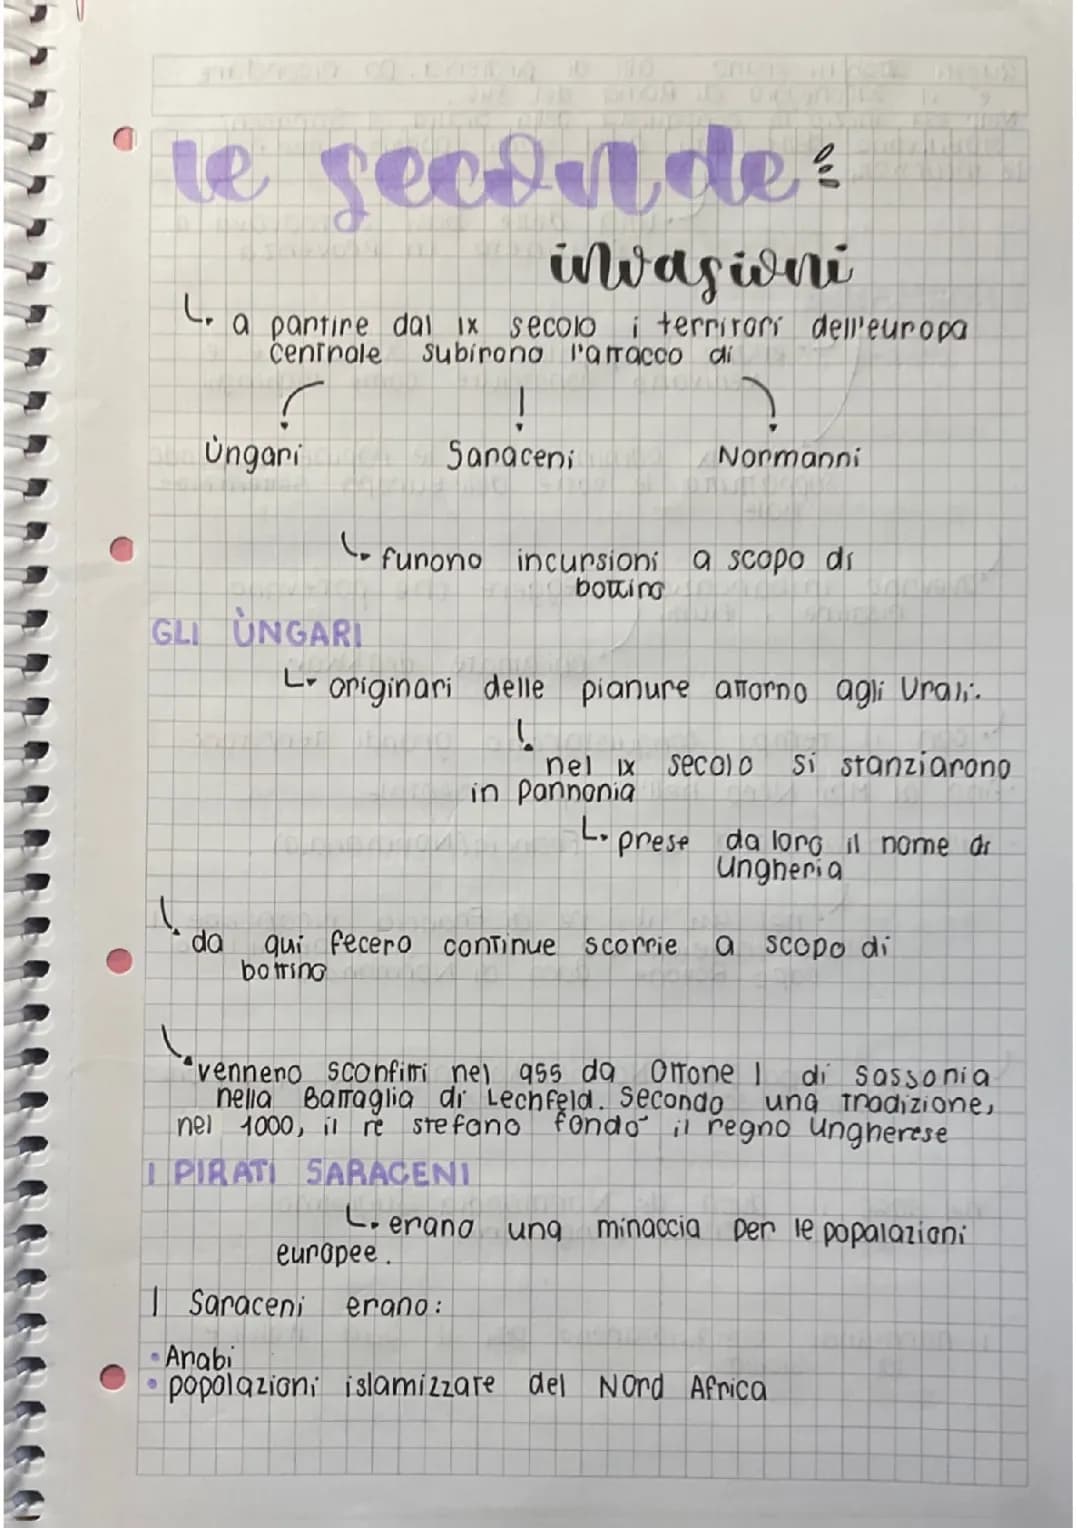 le seconde
invasioni
a partire dal IX secolo i territori dell'europa
centrale subirono l'attacco di
Ùngari Saraceni Normanni
furono incursioni a scopo di
bottino
GLI ÙNGARI
originari delle pianure attorno agli Urali.
nel IX secolo si stanziarono
in Pannonia
prese da loro il nome di
Ungheria
da qui fecero continue scorrie a scopo di
bottino
vennero sconfitti nel 955 da Ottone I di Sassonia
nella Battaglia di Lechfeld. Secondo una tradizione,
nel 1000, il re stefano fondò il regno Ungherese
I PIRATI SARACENI
erano una minaccia per le popolazioni
europee.
I Saraceni erano:
• Arabi
• popolazioni islamizzate del Nord Africa